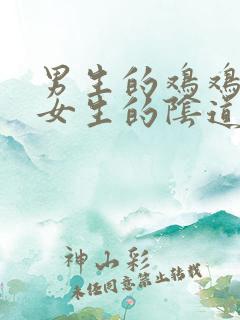 男生的鸡鸡
女生的陰道
神山彩
未任同意禁止转载